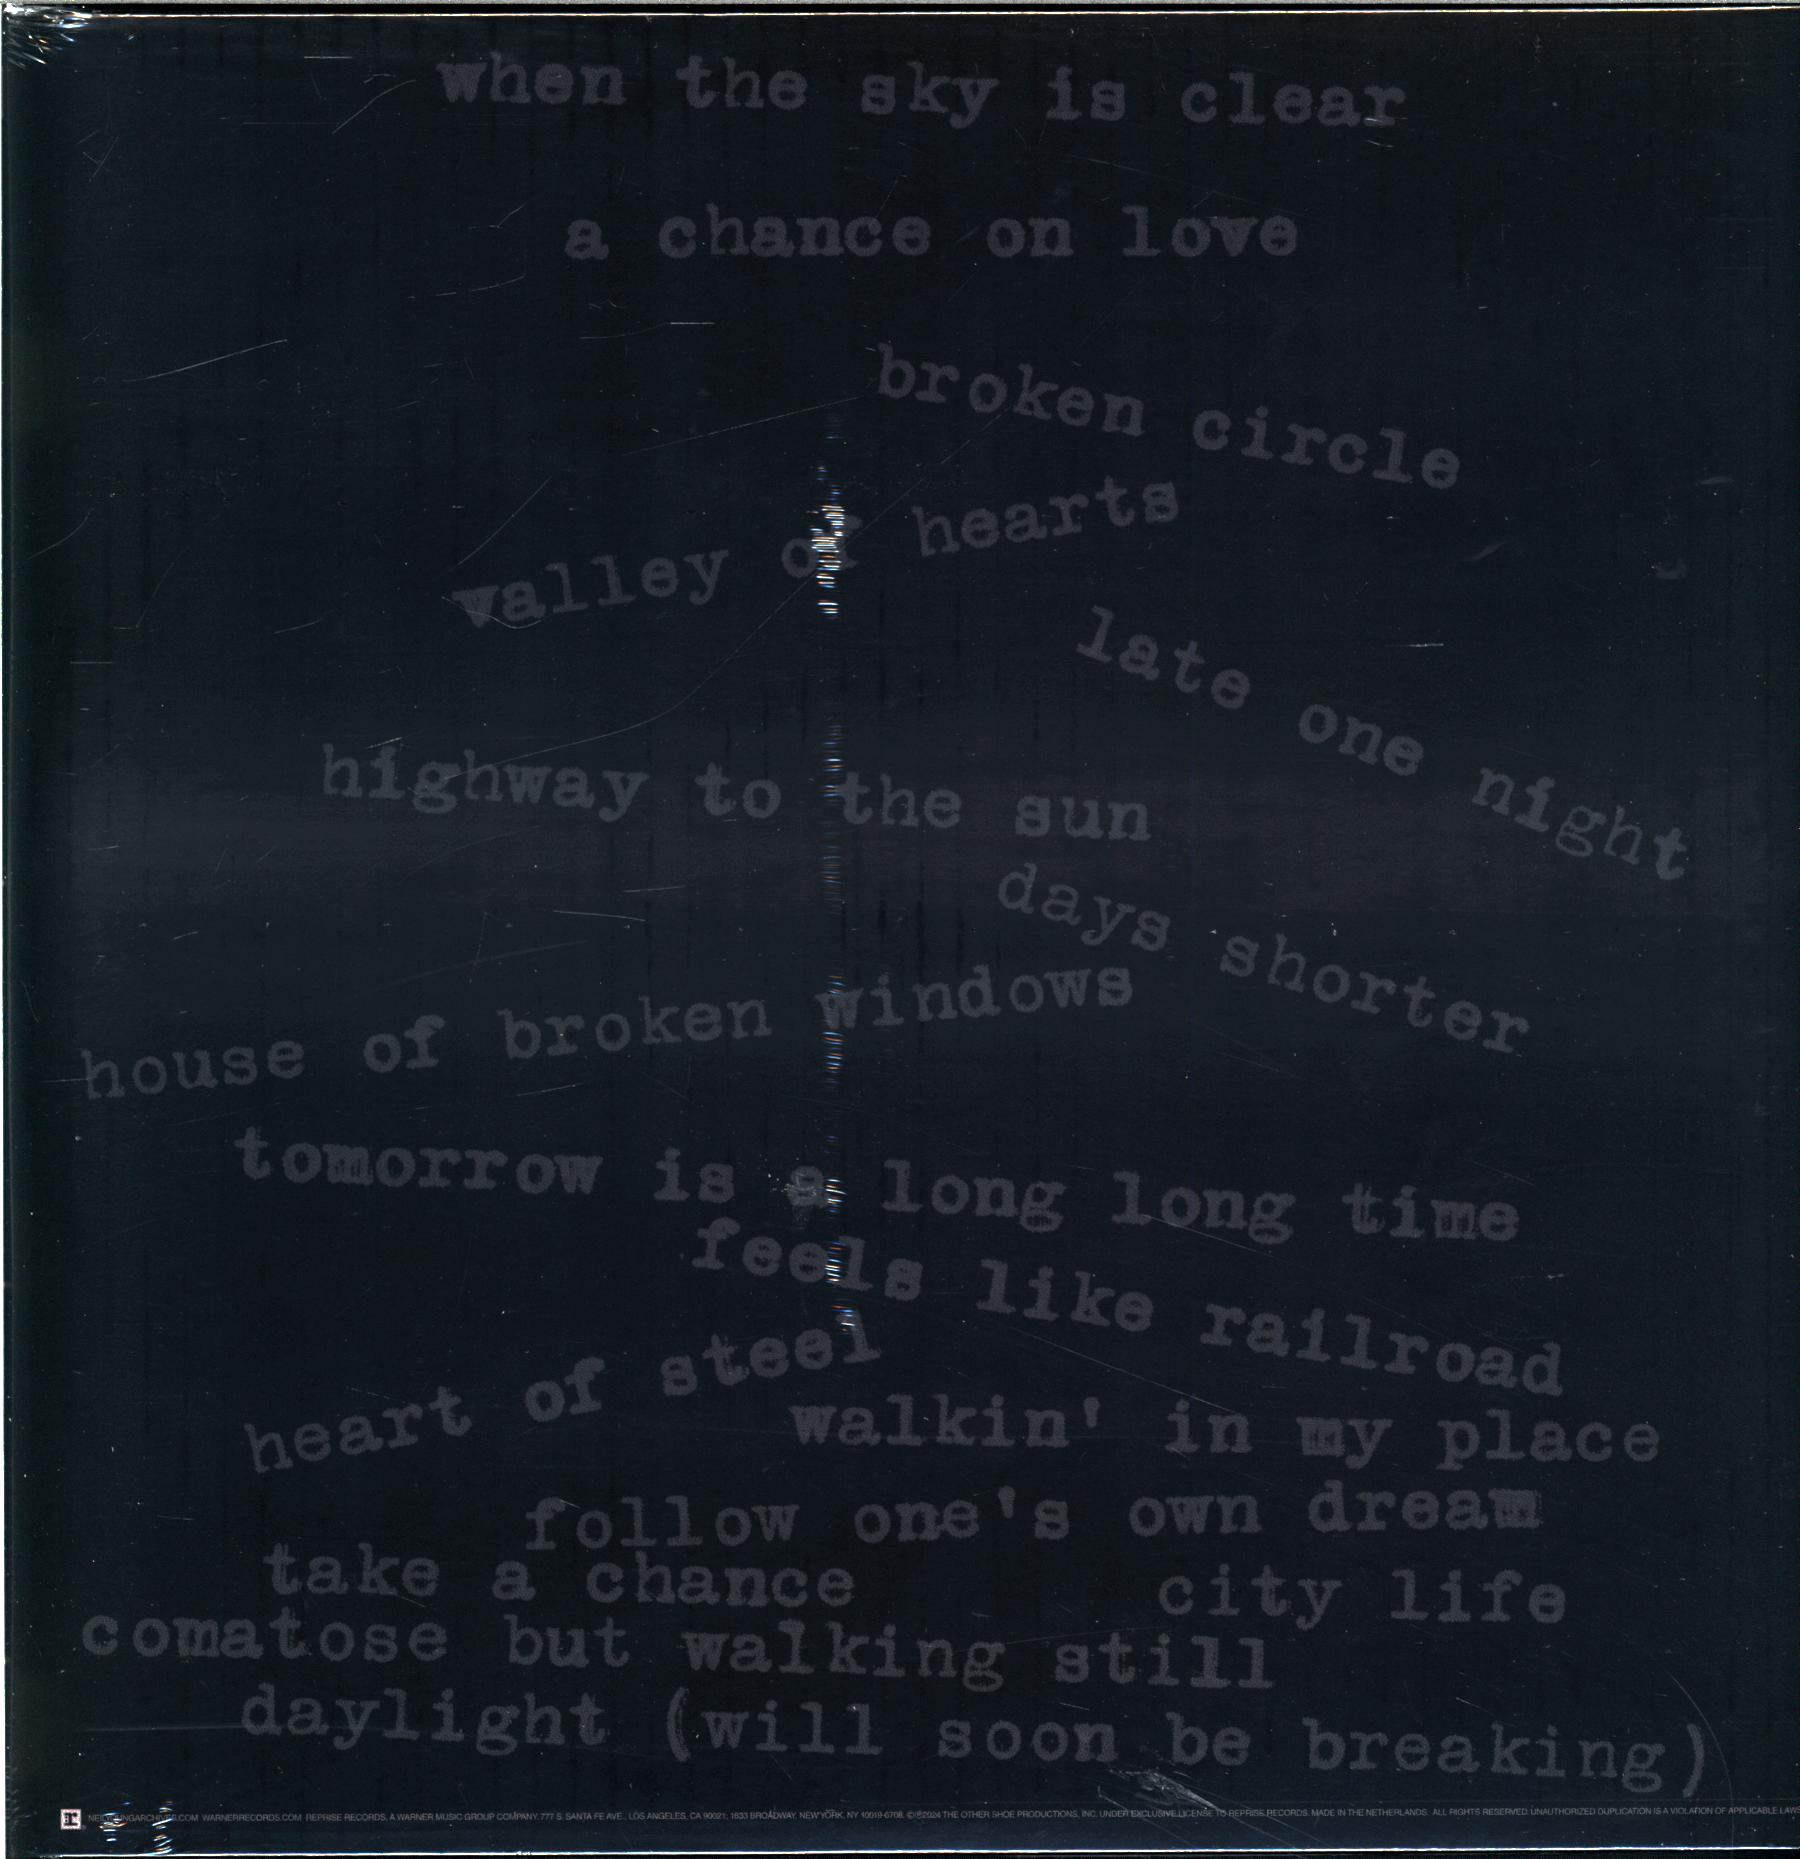 when the sky is clear
a chance on love
broken circle
valley of hearts
late one night
highway to the sun
days shorter
house of broken windows
tomorrow is a long long time
feels like railroad
heart of steel
walkin' in my place
follow one's own dream
take a chance
city life
comatose but walking still
daylight (will soon be breaking)
NEILYOUNGARCHIVES.COM WARNERRECORDS.COM REPRISE RECORDS, A WARNER MUSIC GROUP COMPANY. 777 S. SANTA FE AVE., LOS ANGELES, CA 90021; 1633 BROADWAY, NEW YORK, NY 10019-6708. ©℗2024 THE OTHER SHOE PRODUCTIONS, INC. UNDER EXCLUSIVE LICENSE TO REPRISE RECORDS. MADE IN THE NETHERLANDS. ALL RIGHTS RESERVED. UNAUTHORIZED DUPLICATION IS A VIOLATION OF APPLICABLE LAWS